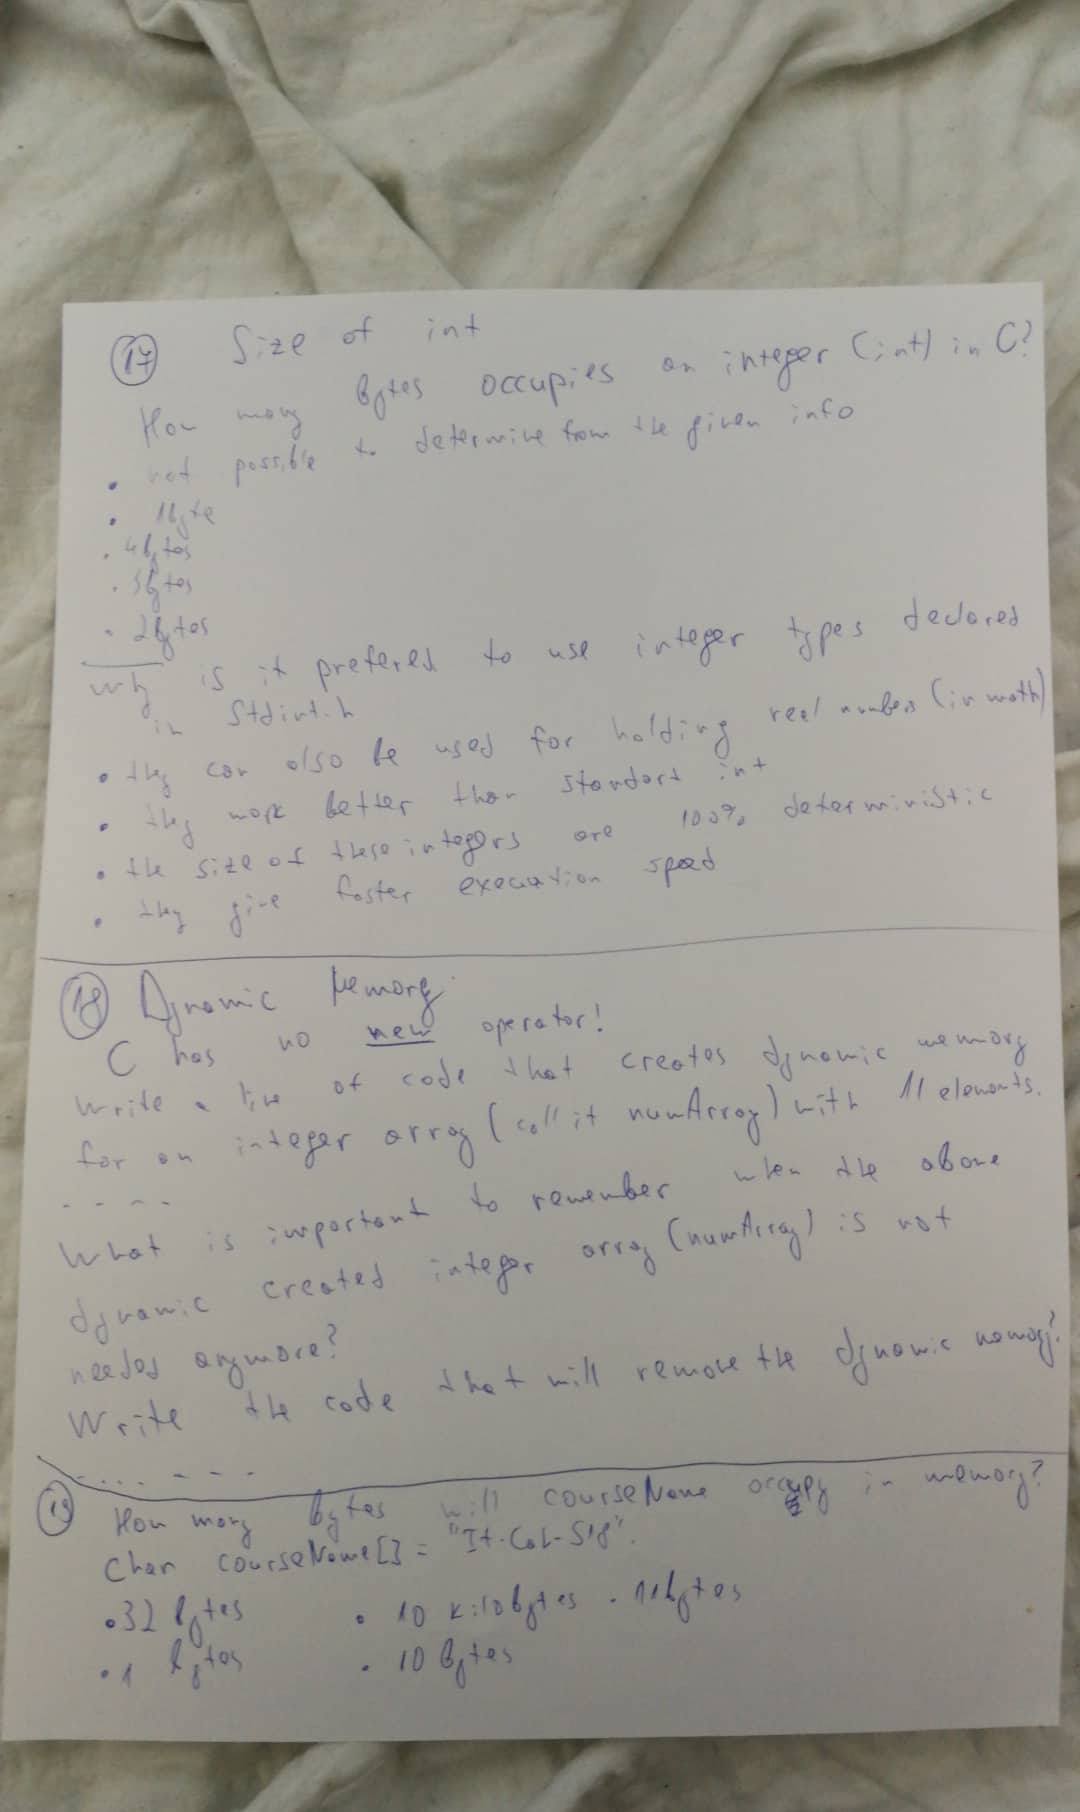 17 Size of int
How many bytes occupies an integer (int) in C?
• not possible to determine from the given info
• 1byte
• 4bytes
• 3bytes
• 2bytes
Why is it prefered to use integer types declared
in Stdint.h
• they can also be used for holding real numbers (in math)
• they work better than standart int
• the size of these integers are 100% deterministic
• they give faster execution speed
18 Dynamic Memory
C has no new operator!
Write a line of code that creates dynamic memory
for an integer array (call it numArray) with 11 elements.
- - - -
What is important to remember when the above
dynamic created integer array (numArray) is not
needed anymore?
Write the code that will remove the dynamic memory?
- - - - - -
19 How many bytes will courseName occupy in memory?
Char courseName[] = "It-Cal-S18".
• 32 bytes • 10 kilobytes • 11bytes
• 1 bytes • 10 bytes